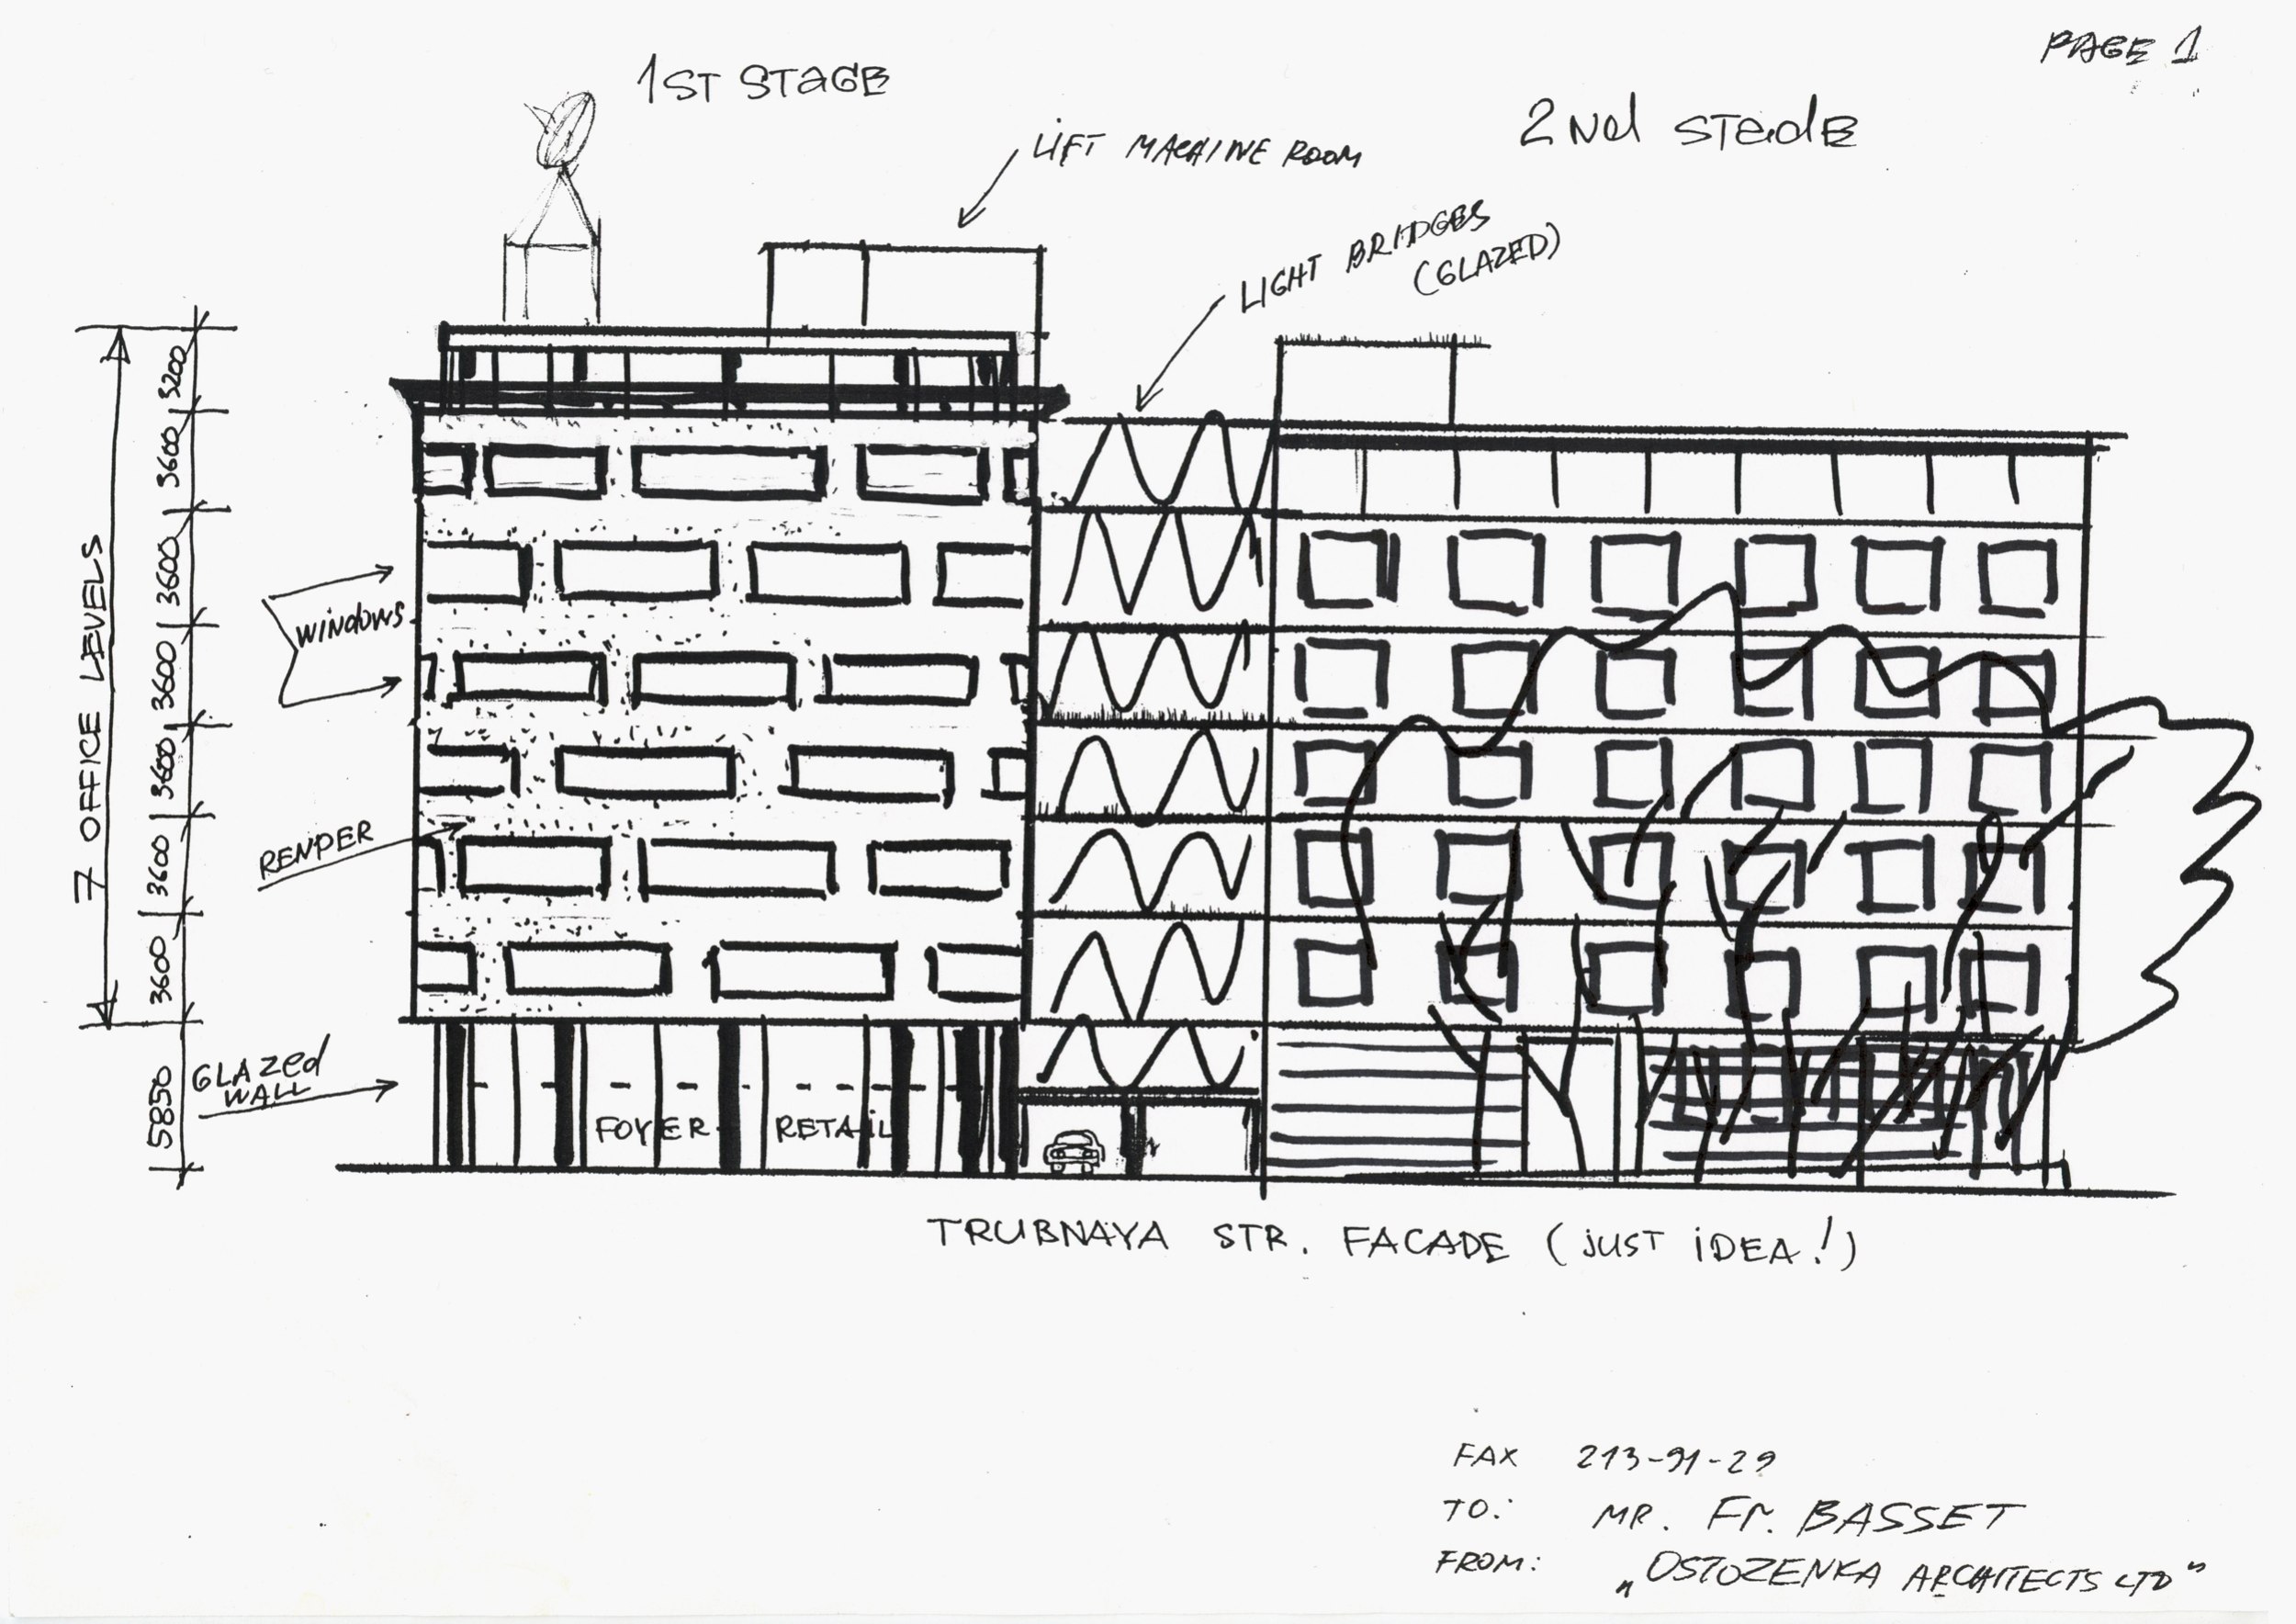 PAGE 1
1ST STAGE
2Nd STadE
LIFT MACHINE ROOM
LIGHT BRIDGES
(GLAZED)
7 OFFICE LEVELS
3200
3600
3600
3600
3600
3600
3600
5850
WINDOWS
RENDER
GLAZED
WALL
FOYER
RETAIL
TRUBNAYA STR. FACADE (JUST IDEA!)
FAX 213-91-29
TO: MR. Fr. BASSET
FROM: „OSTOZENKA ARCHITECTS LTD"